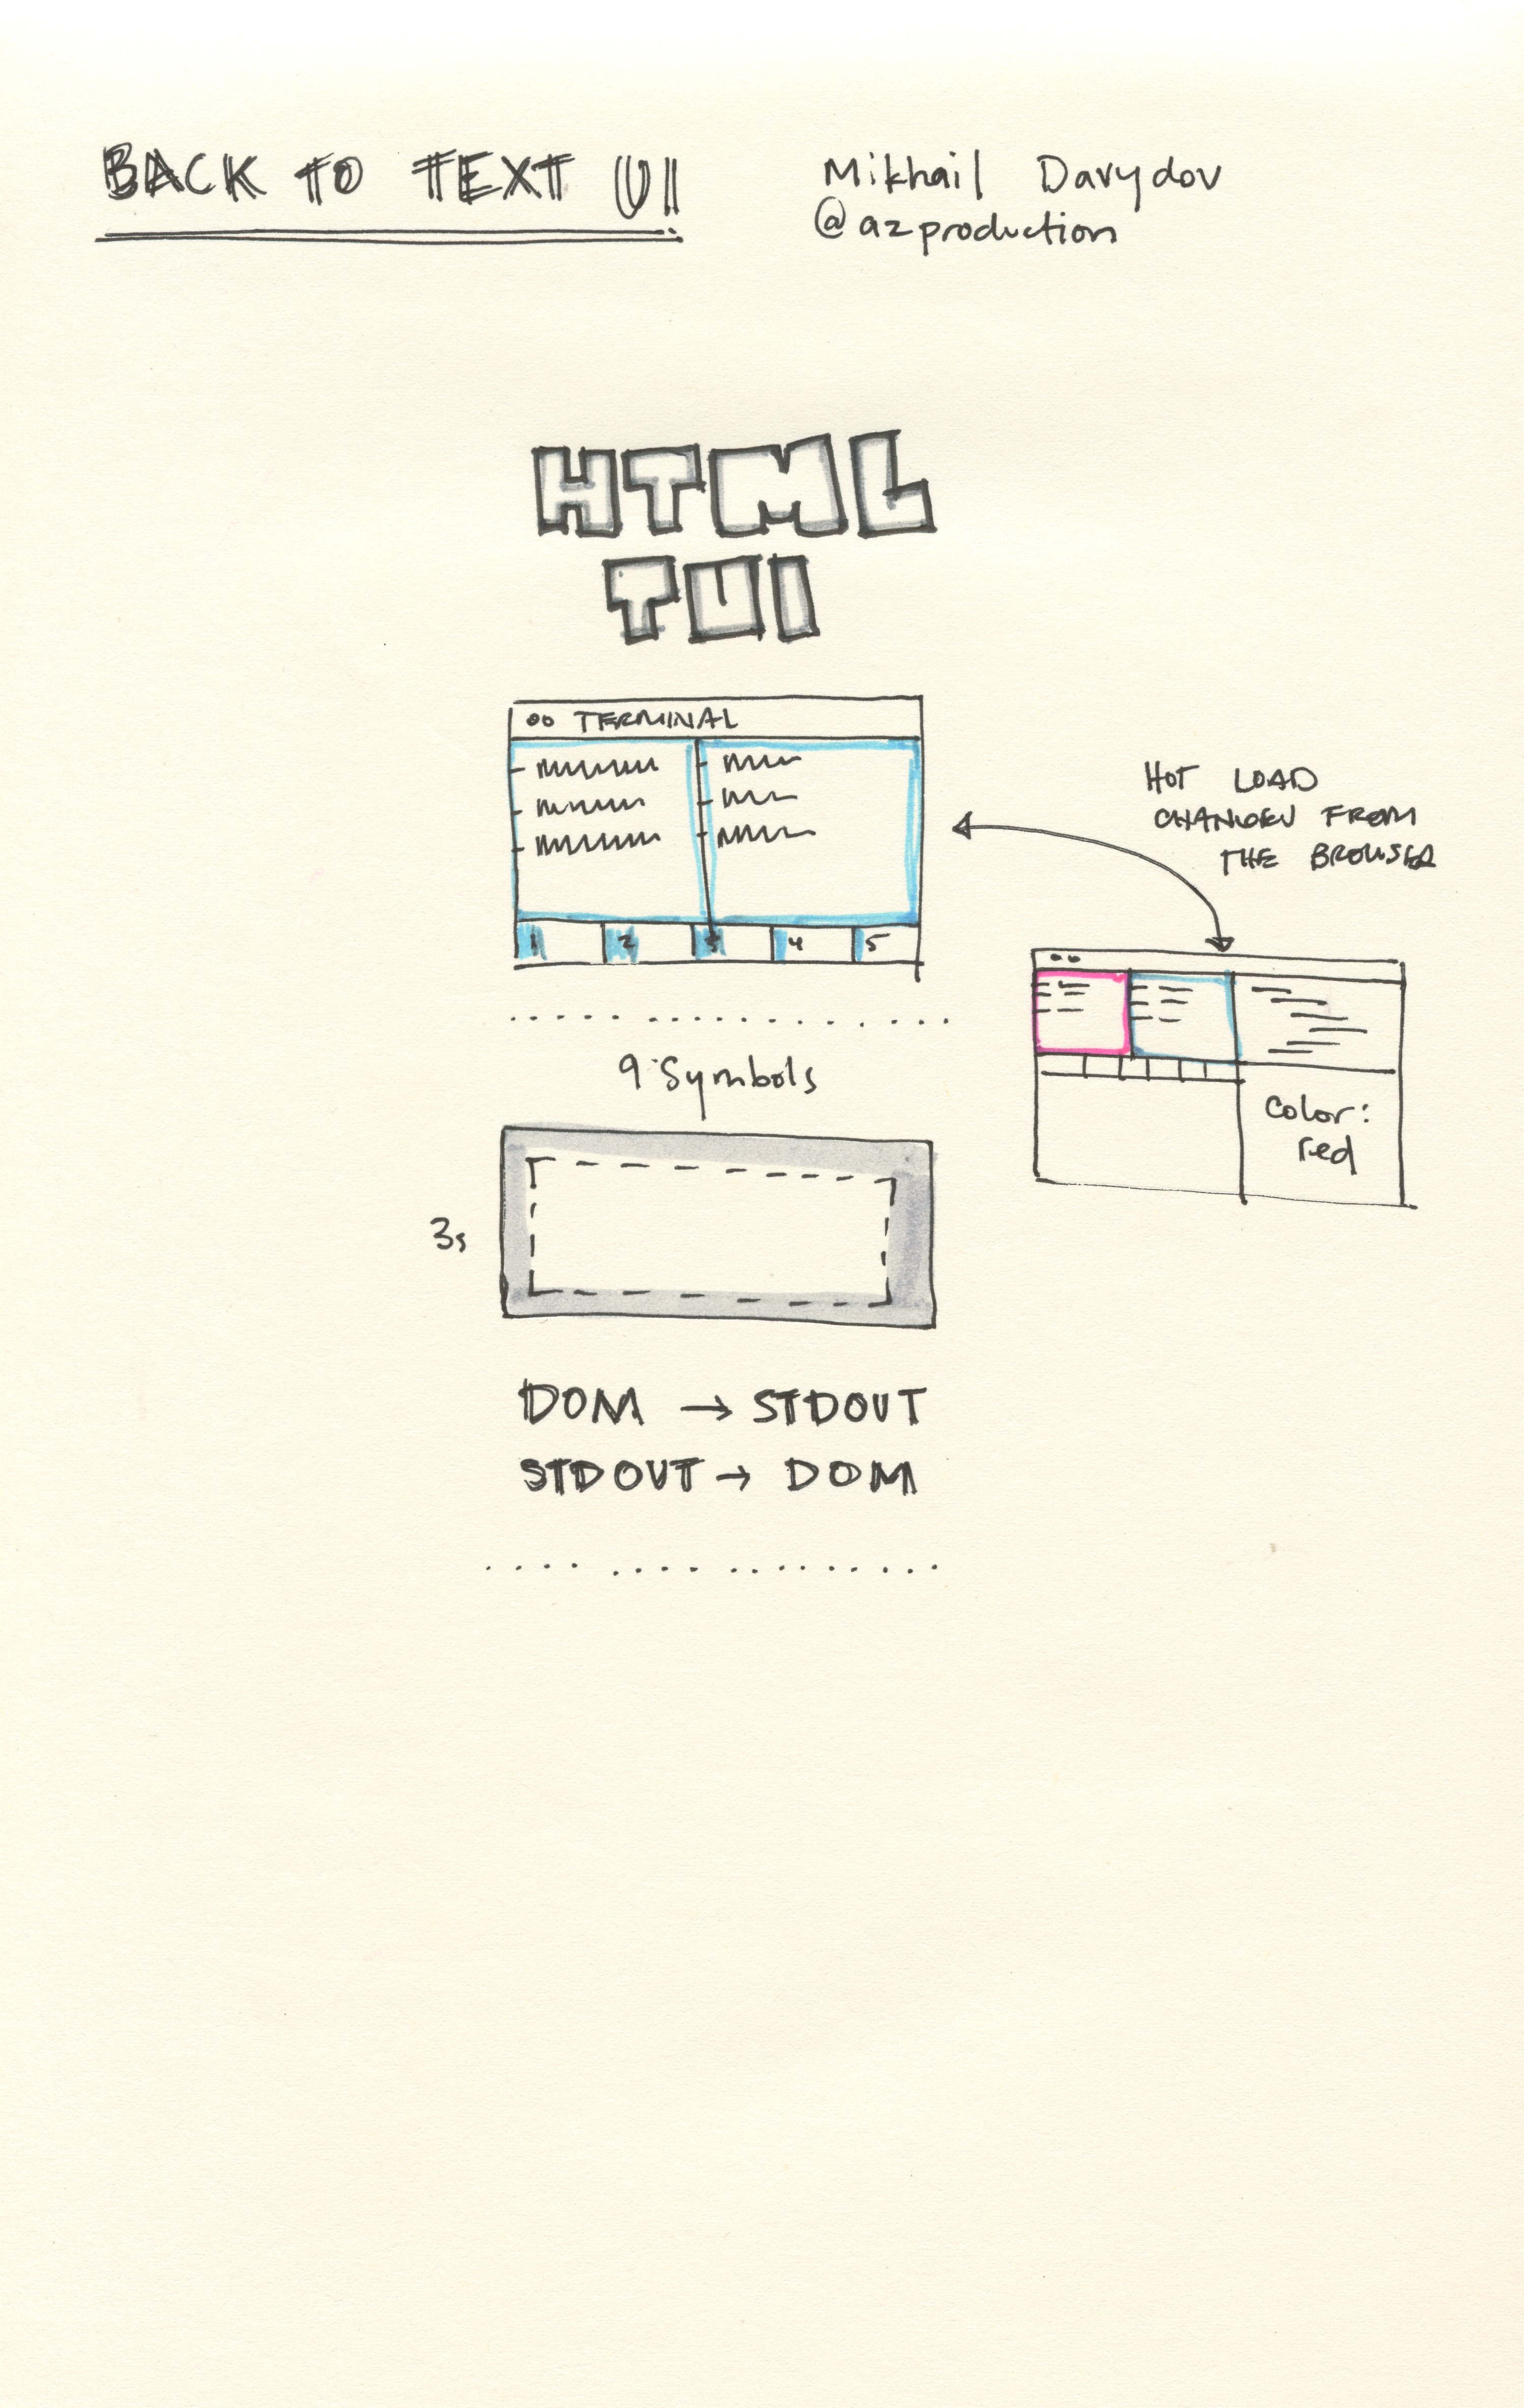 BACK TO TEXT UI
Mikhail Davydov
@azproduction
HTML
TUI
TERMINAL
1 2 3 4 5
HOT LOAD
CHANGES FROM
THE BROWSER
9 Symbols
color:
red
3s
DOM → STDOUT
STDOUT → DOM